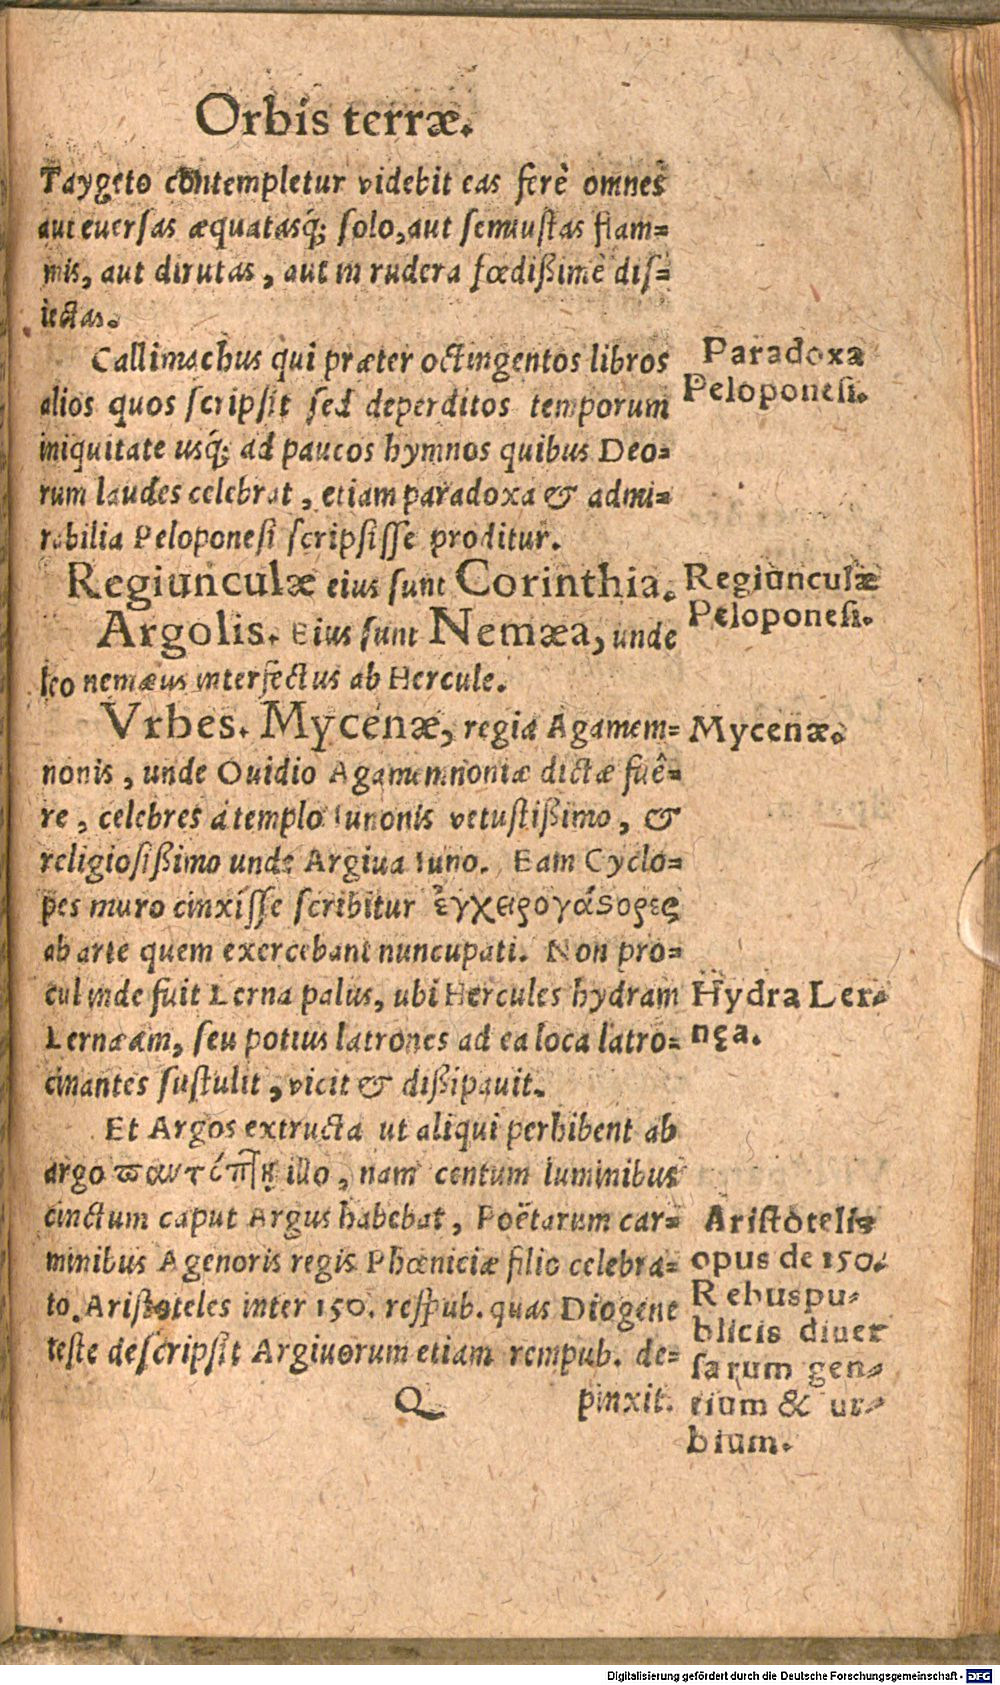 Orbis terræ.
Taygeto contempletur videbit eas ferè omnes
aut euersas æquatasq́; solo, aut semiustas flam=
mis, aut dirutas, aut in rudera fœdißimè dis=
iectas.
Callimachus qui præter octingentos libros
alios quos scripsit sed deperditos temporum
iniquitate usq́; ad paucos hymnos quibus Deo=
rum laudes celebrat, etiam paradoxa & admi=
rabilia Peloponesi scripsisse proditur.
Paradoxa
Peloponesi.
Regiunculæ eius sunt Corinthia.
Argolis. Eius sunt Nemæa, unde
leo nemæus interfectus ab Hercule.
Regiunculæ
Peloponesi.
Vrbes. Mycenæ, regia Agamem=
nonis, unde Ouidio Agamemnoniæ dictæ fuê=
re, celebres à templo Iunonis vetustißimo, &
religiosißimo unde Argiua Iuno. Eam Cyclo=
pes muro cinxisse scribitur ἐγχειρογάστορες
ab arte quem exercebant nuncupati. Non pro=
cul inde fuit Lerna palus, ubi Hercules hydram
Lernæam, seu potius latrones ad ea loca latro=
cinantes sustulit, vicit & dißipauit.
Mycenæ.
Hydra Ler=
nęa.
Et Argos extructa ut aliqui perhibent ab
argo illo, nam centum luminibus
cinctum caput Argus habebat, Poëtarum car=
minibus Agenoris regis Phœniciæ filio celebra=
to. Aristoteles inter 150. respub. quas Diogene
teste descripsit Argiuorum etiam rempub. de=
Q pinxit.
Aristotelis
opus de 150.
Rebuspu=
blicis diuer
sarum gen=
tium & ur=
bium.
Digitalisierung gefördert durch die Deutsche Forschungsgemeinschaft - DFG